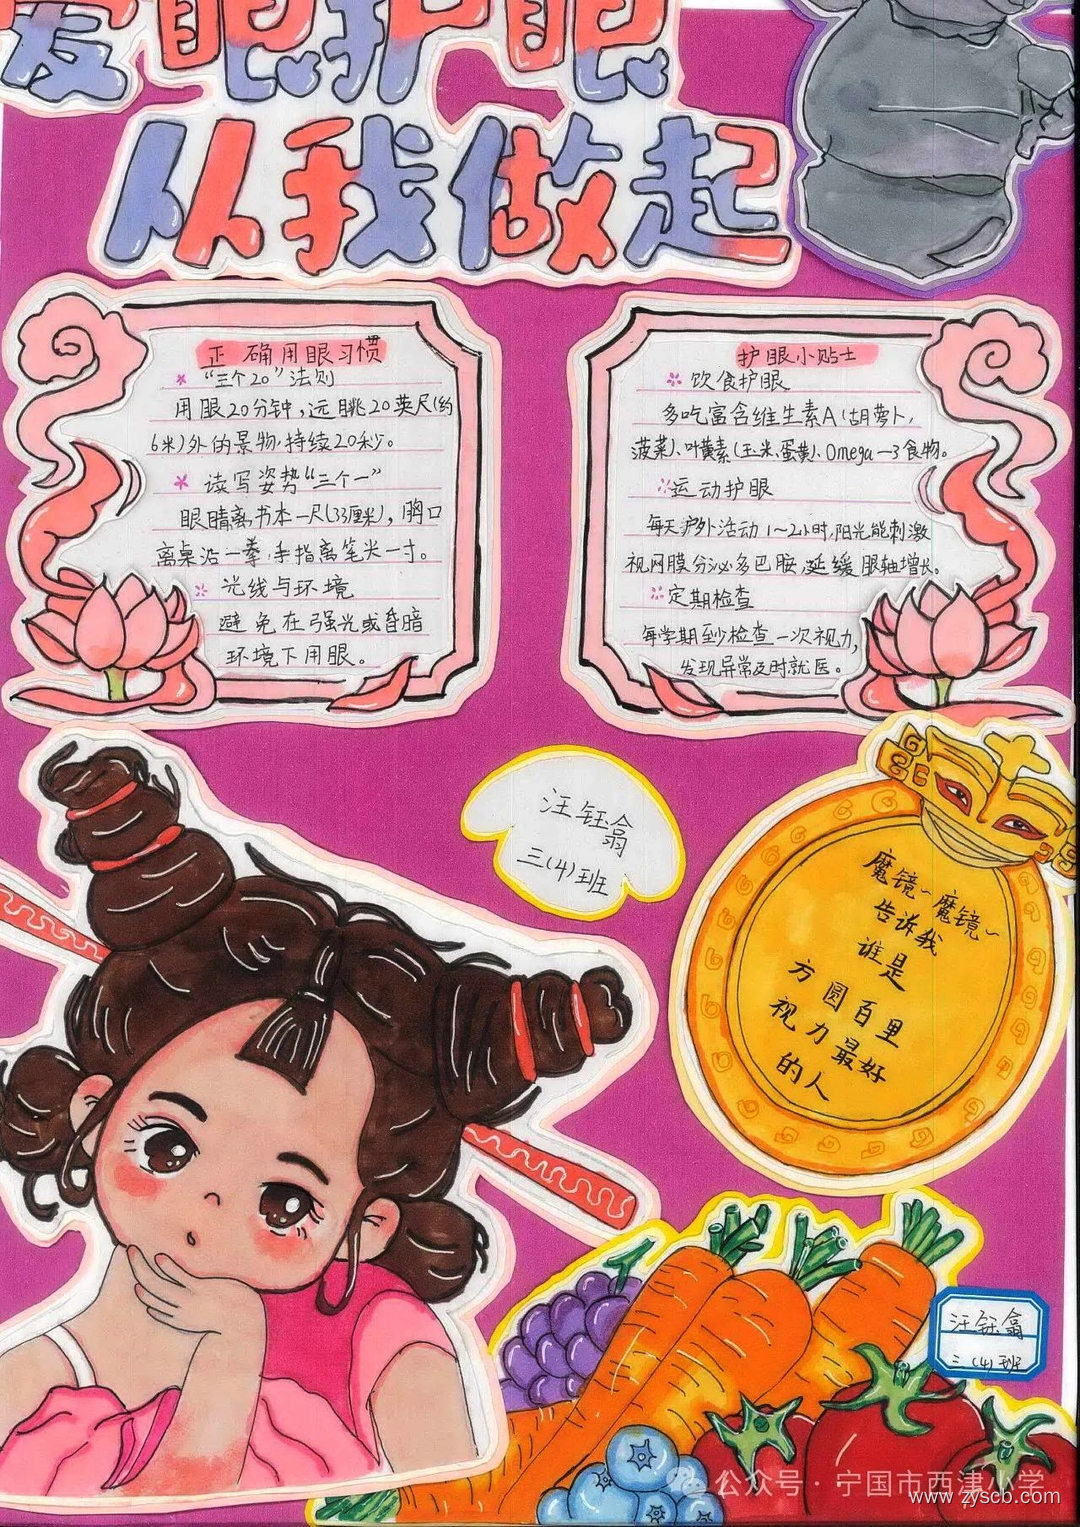 爱眼护眼
从我做起
正确用眼习惯
“三个20”法则
用眼20分钟,远眺20英尺(约
6米)外的景物,持续20秒。
读写姿势“三个一”
眼睛离书本一尺(33厘米),胸口
离桌沿一拳,手指离笔尖一寸。
光线与环境
避免在强光或昏暗
环境下用眼。
护眼小贴士
饮食护眼
多吃富含维生素A(胡萝卜,
菠菜)、叶黄素(玉米、蛋黄)、Omega-3食物。
运动护眼
每天户外活动1~2小时,阳光能刺激
视网膜分泌多巴胺,延缓眼轴增长。
定期检查
每学期至少检查一次视力,
发现异常及时就医。
汪钰翕
三(4)班
魔镜~魔镜~
告诉我
谁是
方圆百里
视力最好
的人
汪钰翕
三(4)班
公众号·宁国市西津小学
www.zyscb.com